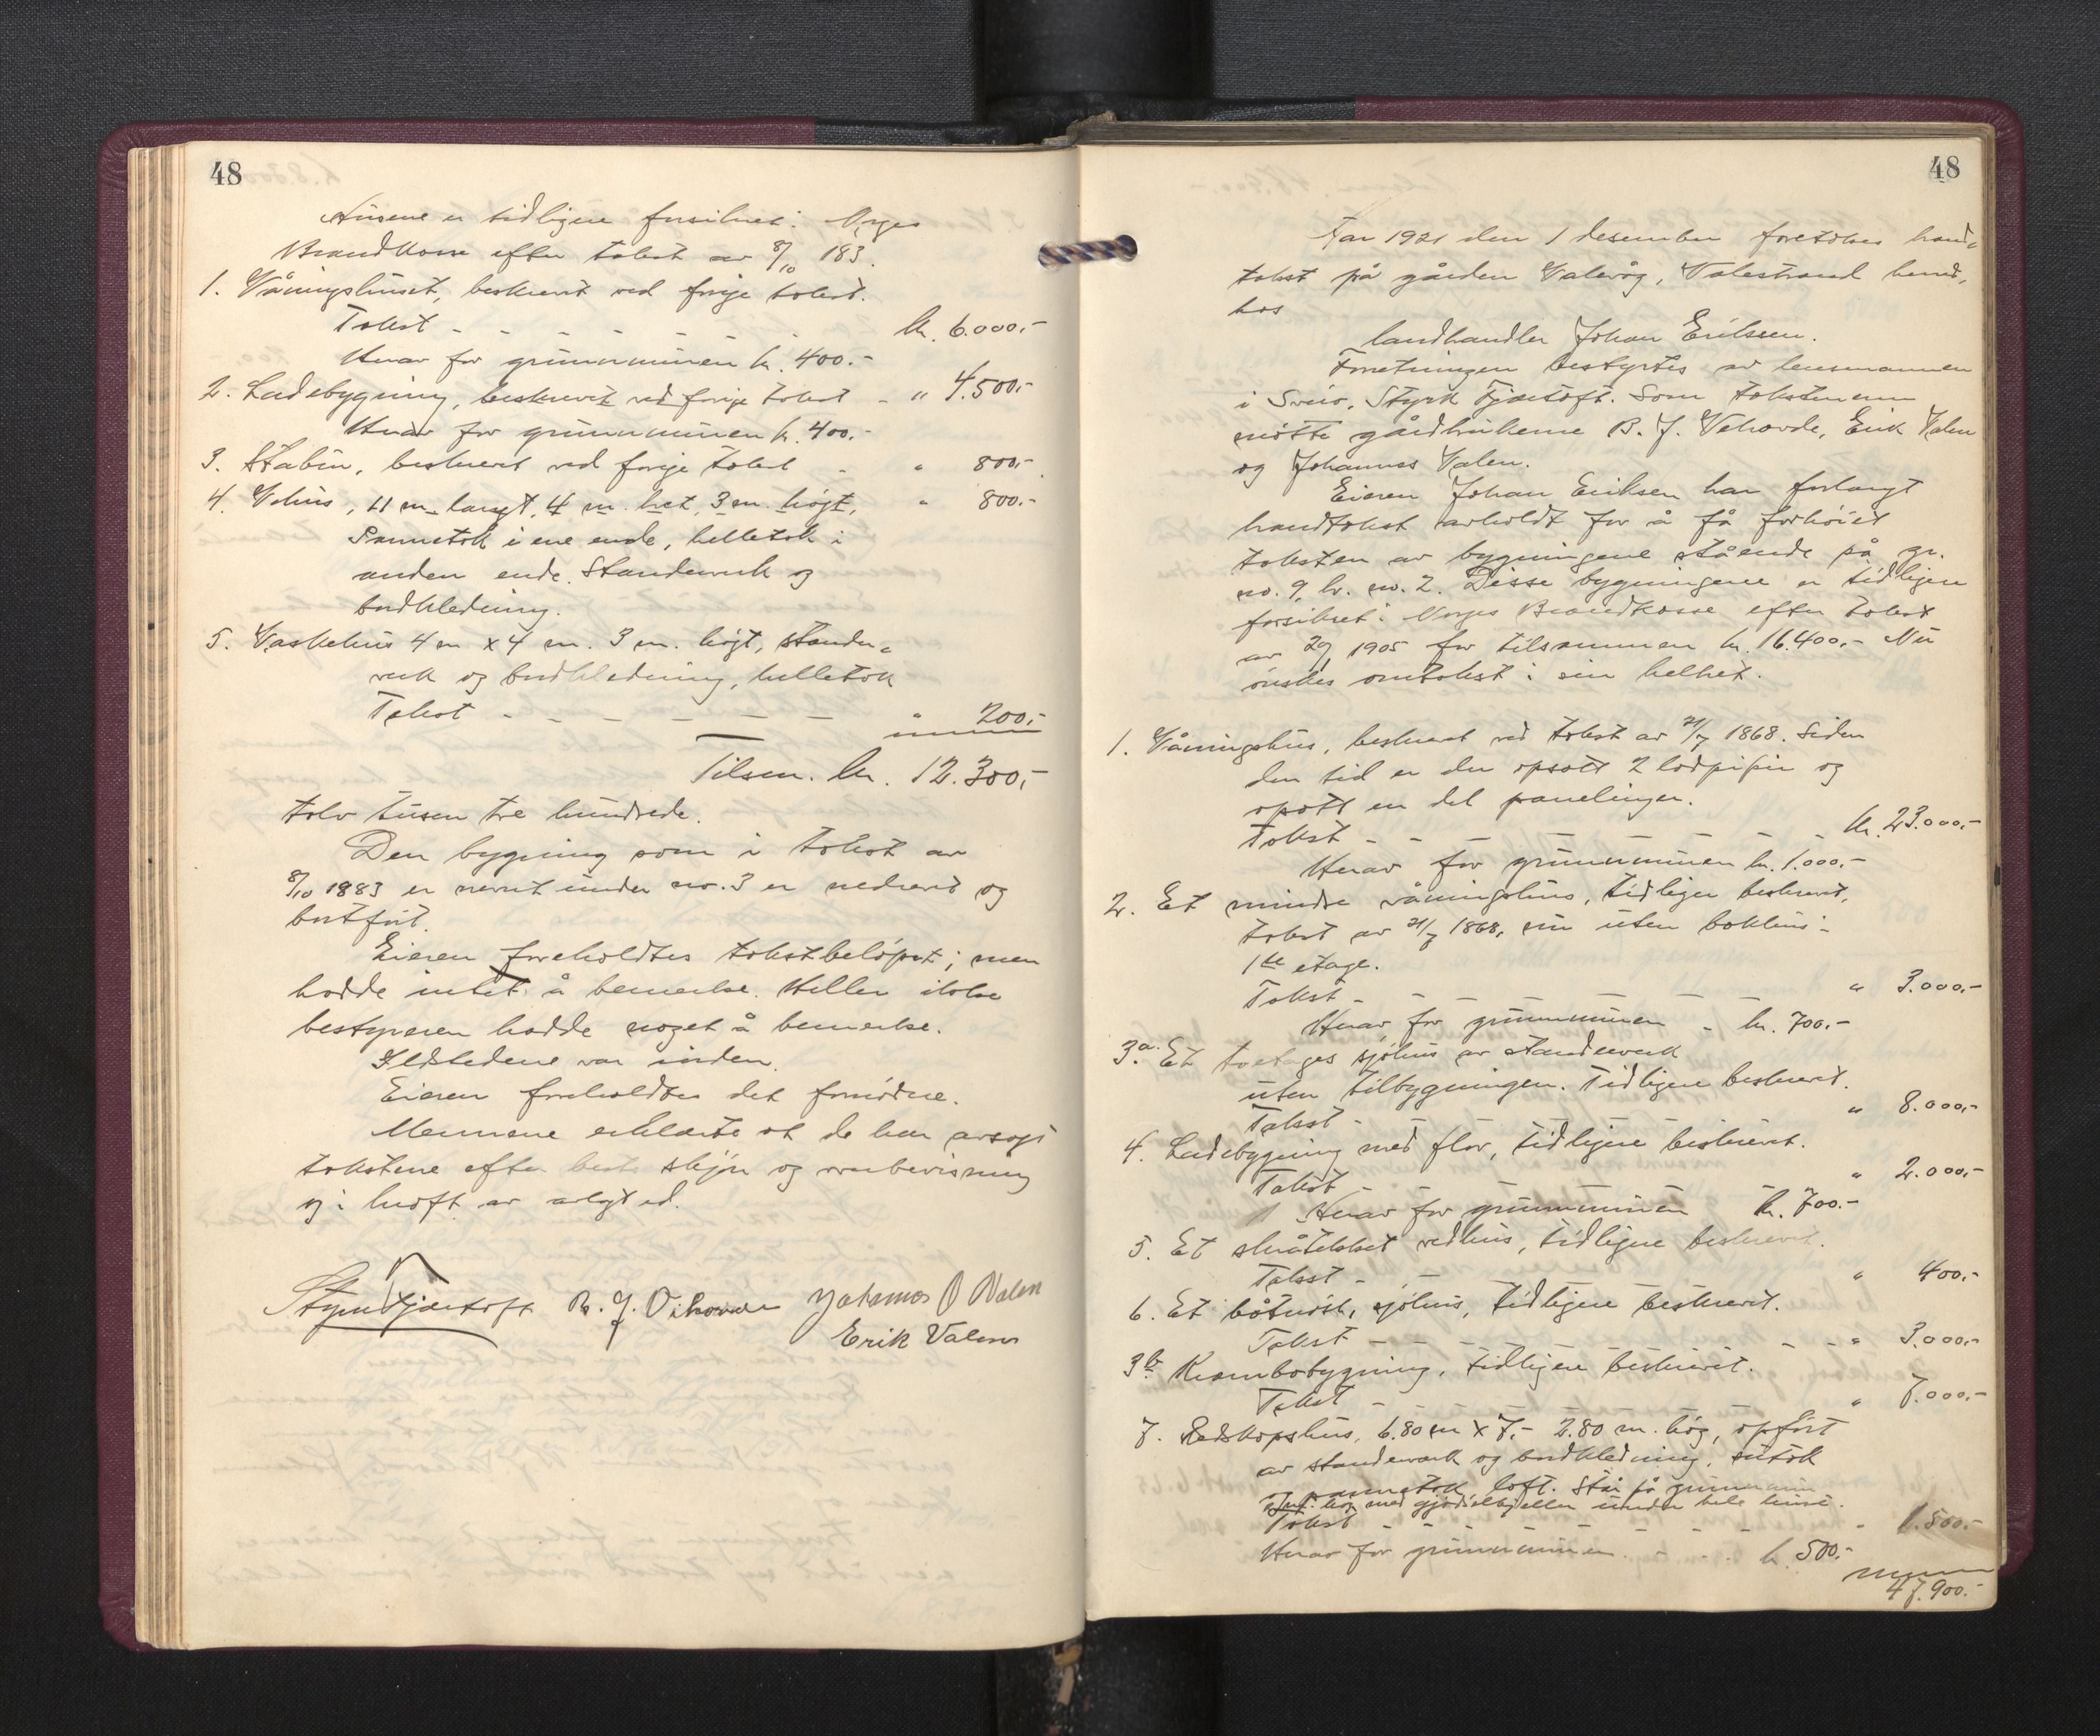 48
Husene er tidligere forsikret i Norges
Brandkasse efter takst av 8/10 183.
1. Våningshuset, beskrevet ved forige takst.
Takst - - - - - - kr. 6.000,-
Herav for grunnmuren kr. 400.-
2. Ladebygning, beskrevet ved forige takst - " 4.500,-
Herav for grunnmuren kr. 400.-
3. Stabur, beskrevet ved forige takst - " 800,-
4. Vehus, 11 m. langt, 4 m. bret, 3 m. högt, " 800.-
Pannetak i ene ende, helletak i
anden ende. Standerverk og
bordkledning.
5. Vaskehus 4 m x 4 m. 3 m. högt, stander-
verk og bordkledning, helletak
Takst - - - - - - " 200,-
Tilsm. kr. 12.300,-
tolv tusen tre hundrede.
Den bygning som i takst av
8/10 1883 er nevnt under no. 3 er nedrevet og
bortfört.
Eieren foreholdtes takstbelöpet; men
hadde intet å bemerke. Heller ikke
bestyreren hadde noget å bemerke.
Ildstedene var inden.
Eieren foreholdtes det fornödne.
Mennene erklærte at de har avsagt
takstene efter beste skjön og overbevisning
og i kraft av avlagt ed.
Styrk Fjærtoft B. J. Vihovde Johannes O Valen
Erik Valen
48
Aar 1921 den 1 desember foretokes brand-
takst på gården Valevåg, Valestrand herred,
hos
landhandler Johan Eriksen.
Forretningen bestyrtes av lensmannen
i Sveio, Styrk Fjærtoft. Som takstmenn
mötte gårdbrukerne B. J. Vihovde, Erik Valen
og Johannes Valen.
Eieren Johan Eriksen har forlangt
brandtakst avholdt for å få forhöiet
taksten av bygningene stående på gr.
no. 9, br. no. 2. Disse bygningene er tidligere
forsikret i Norges Brandkasse efter takst
av 1905 for tilsammen kr. 16.400,- Nu
önskes omtakst i sin helhet.
1. Våningshus, beskrevet ved takst av 21/7 1868. Siden
den tid er der opsatt 2 lodpiper og
opsatt en del panelinger.
Takst - - - - - - - kr. 23.000,-
Herav for grunnmuren kr. 1.000.-
2. Et mindre våningshus, tidligere beskrevet,
takst av 21/7 1868, nu uten bakhus i
1ste etage.
Takst - - - - - - " 3.000,-
Herav for grunnmuren - kr. 700.-
3a. Et toetages sjöhus av standerverk
uten tilbygningen. Tidligere beskrevet.
Takst - - - - - - " 8.000,-
4. Ladebygning med flor, tidligere beskrevet.
Takst - - - - - - " 2.000,-
Herav for grunnmuren kr. 700.-
5. Et skråtekket vedhus, tidligere beskrevet.
Takst - - - - - - " 400,-
6. Et båtnöst, sjöhus, tidligere beskrevet.
Takst - - - - - - " 3.000,-
3b Krambobygning, tidligere beskrevet.
Takst - - - - - - " 7.000,-
7. Redskapshus, 6.80 m x 7.- 2.80 m. hög, opfört
av standerverk og bordkledning, sutak
og pannetak loft. Står på grunnmur
med gjödselkjeller under hele huset.
Takst - - - - - - - 1.500.-
Herav for grunnmuren - - - kr. 500.-
47.900.-